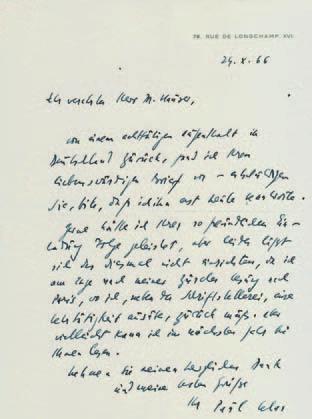 78, RUE DE LONGCHAMP. XVI
24.X.66
Sehr verehrter Herr Dr. 
von einem achttägigen Aufenthalt in
Deutschland zurück, fand ich Ihren
liebenswürdigen Brief vor — entschuldigen
Sie, bitte, daß ich ihn erst heute beantworte.
Gerne hätte ich Ihrer so freundlichen Ein-
ladung Folge geleistet, aber leider läßt
sich das diesmal nicht einrichten, da ich
am Tage nach meiner Zürcher Lesung nach
Paris, wo ich, neben der Schriftstellerei, eine
Lehrtätigkeit ausübe, zurück muß. Aber
vielleicht kann ich im nächsten Jahr bei
Ihnen lesen.
Nehmen Sie meinen herzlichen Dank
und meine besten Grüße
Ihr Paul Celan